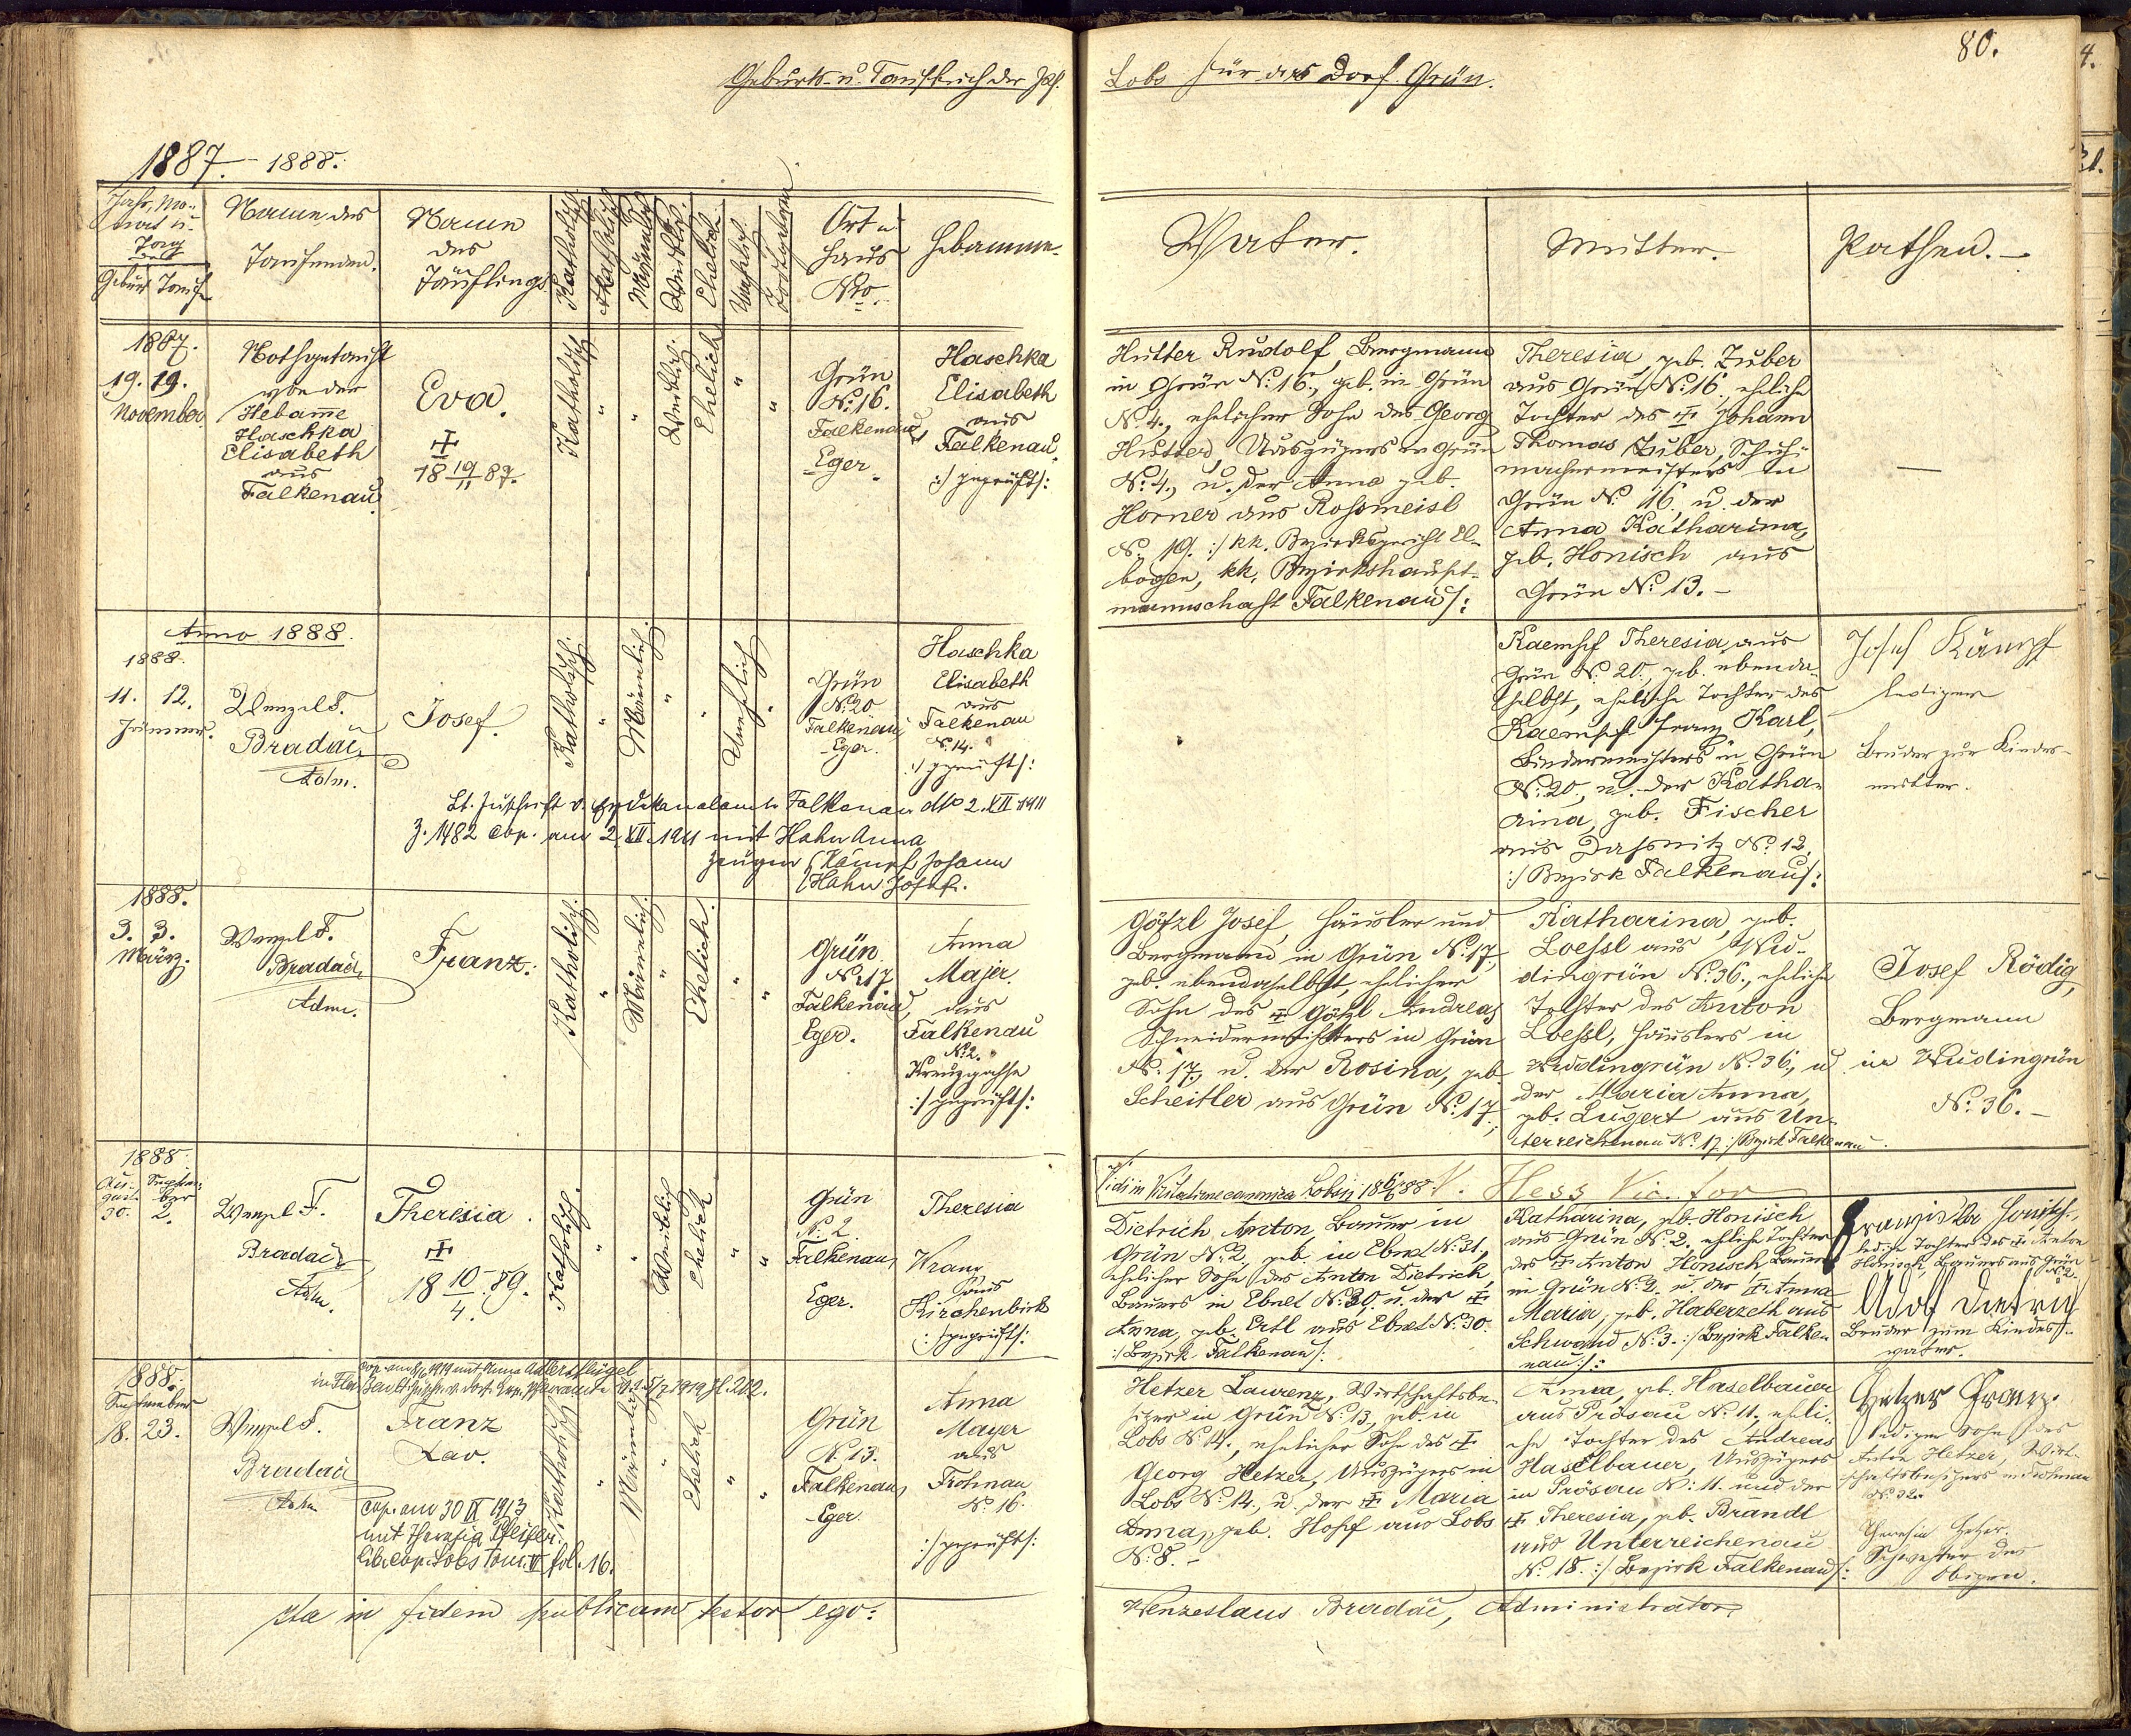 80.
Geburts- u. Taufbuch der Pf. Lobs für das Dorf Grün.
1887. - 1888.
Jahr, Mo-
nat u.
Tag
Geburt Taufe
Name des
Taufenden.
Namen
des
Täuflings
Katholisch
Akatholisch
Männlich
Weiblich.
Ehelich.
Unehelich.
Ort u
Haus
Nro.
Hebamme.
Vater.
Mutter.
Pathen. -
1887.
19. 19.
November
Nothgetauft
von der
Hebame
Haschka
Elisabeth
aus
Falkenau.
Eva.
18 19/11 87.
Katholisch
"
"
Weiblich.
Ehelich
"
"
Grün
No: 16.
Falkenau,
Eger.
Haschka
Elisabeth
aus
Falkenau.
:/ geprüft /:
Hutter Rudolf, Bergmann
in Grün No: 16., geb. in Grün
No. 4., ehelicher Sohn des Georg
Hutter, Auszügers in Grün
No: 4., u. der Anna geb.
Horner aus Rossmeisl
No. 19. :/ kk. Bezirksgericht El-
bogen, kk. Bezirkshaupt-
mannschaft Falkenau /:
Theresia, geb. Zuber
aus Grün No: 16, eheliche
Tochter des ± Johann
Thomas Zuber, Schuh-
machermeisters in
Grün No. 16, u. der
Anna Katharina,
geb. Honisch aus
Grün No: 13. -
—
Anno 1888.
1888.
11. 12.
Jänner.
Wenzel F.
Bradač
Adm.
Josef.
Katholisch.
"
Männlich.
"
"
Unehelich
"
Grün
No: 20
Falkenau,
Eger.
Haschka
Elisabeth
aus
Falkenau
No. 14.
:/ geprüft /:
Kaempf Theresia, aus
Grün No. 20., geb. ebenda-
selbst, eheliche Tochter des
Kaempf Franz Karl,
Bindermeisters in Grün
No: 20, u. der Katha-
rina, geb. Fischer
aus Dassnitz No. 12.
:/ Bezirk Falkenau /:
Josef Kämpf
lediger
Bruder zur Kindes-
mutter.
Lt. Zuschrift v. Erzdekanalamte Falkenau dto 2. XII. 1911
Z. 1482 cop. am 2. XII. 1911 mit Hahn Anna
Zeugen (Kämpf Johann
(Hahn Josef.
1888.
3. 3.
März.
Wenzel F.
Bradač,
Adm.
Franz.
Katholisch.
"
Männlich.
"
Ehelich.
"
"
Grün
No: 17
Falkenau,
Eger.
Anna
Majer.
aus
Falkenau
No: 2.
Kreuzgasse
:/ geprüft /:
Götzl Josef, Häusler und
Bergmann in Grün No. 17.,
geb. ebendaselbst, ehelicher
Sohn des ± Götzl Andreas
Schneidermeisters in Grün
No. 17., u. der Rosina, geb.
Scheitler aus Grün No: 17.;
Katharina, geb.
Loessl aus Wu-
dingrün No: 36., eheliche
Tochter des Anton
Loessl, Häuslers in
Wudingrün No: 36., u
der Maria Anna,
geb. Lugert aus Un-
terreichenau No. 17. :/ Bezirk Falkenau
Josef Rödig,
Bergmann
in Wudingrün
No: 36. -
Vidi in Visitatione canonica Lobsii 18 6/6 88. V. Hess Vic. for
1888
Au- Septem-
gust ber
30. 2.
Wenzel F.
Bradač
Adm.
Theresia.
±
18 10/4. 89.
Katholisch.
"
"
Weiblich
Ehelich
"
"
Grün
No. 2.
Falkenau,
Eger.
Theresia
Kranz
aus
Kirchenbirk
:/ geprüft /:
Dietrich Anton, Bauer in
Grün No. 2, geb. in Ebmet No. 31.,
ehelicher Sohn des Anton Dietrich,
Bauers in Ebmet No: 30. u. der ±
Anna, geb. Ertl aus Ebmet No. 30.
:/ Bezirk Falkenau /:
Katharina, geb. Honisch
aus Grün No. 2, eheliche Tochter
des ± Anton Honisch, Bauers
in Grün No. 2. u. der ± Anna
Maria, geb. Haberzeth aus
Schwand No. 3. :/ Bezirk Falke-
nau /:
Franziska Honisch,
ledige Tochter des ± Anton
Honisch, Bauers aus Grün
No 2.
Adolf Dietrich
Bruder zum Kindes-
vater.
1888.
September
18. 23.
Wenzel F.
Bradač
Adm
mit Anna Adlersflügel
Franz
Xav.
Cop. am 30 IX 1913
mit Theresia Pfeifer.
lib. cop. Lobs tom. V fol. 16.
Katholisch
"
Männlich
"
Ehelich
"
"
Grün
No. 13.
Falkenau,
Eger.
Anna
Mayer
aus
Frohnau
No. 16.
:/ geprüft /:
Hetzer Laurenz, Wirtschaftsbe-
sitzer in Grün No. 13., geb. in
Lobs No. 14., ehelicher Sohn des ±
Georg Hetzer, Auszügers in
Lobs No. 14., u. der ± Maria
Anna, geb. Hopf aus Lobs
No: 8. -
Anna, geb. Haselbauer
aus Prösau No. 11., eheli-
che Tochter des Andreas
Haselbauer, Auszügers
in Prösau No: 11. und der
± Theresia, geb. Brandl
aus Unterreichenau
No. 18. :/ Bezirk Falkenau /:
Hetzer Franz.
lediger Sohn des
Anton Hetzer, Wirt-
schaftsbesitzers in Frohnau
No. 32.
Theresia Hetzer.
Schwester des
Obigen.
Ita in fidem publicam testor ego: Wenzeslaus Bradač, Administrator